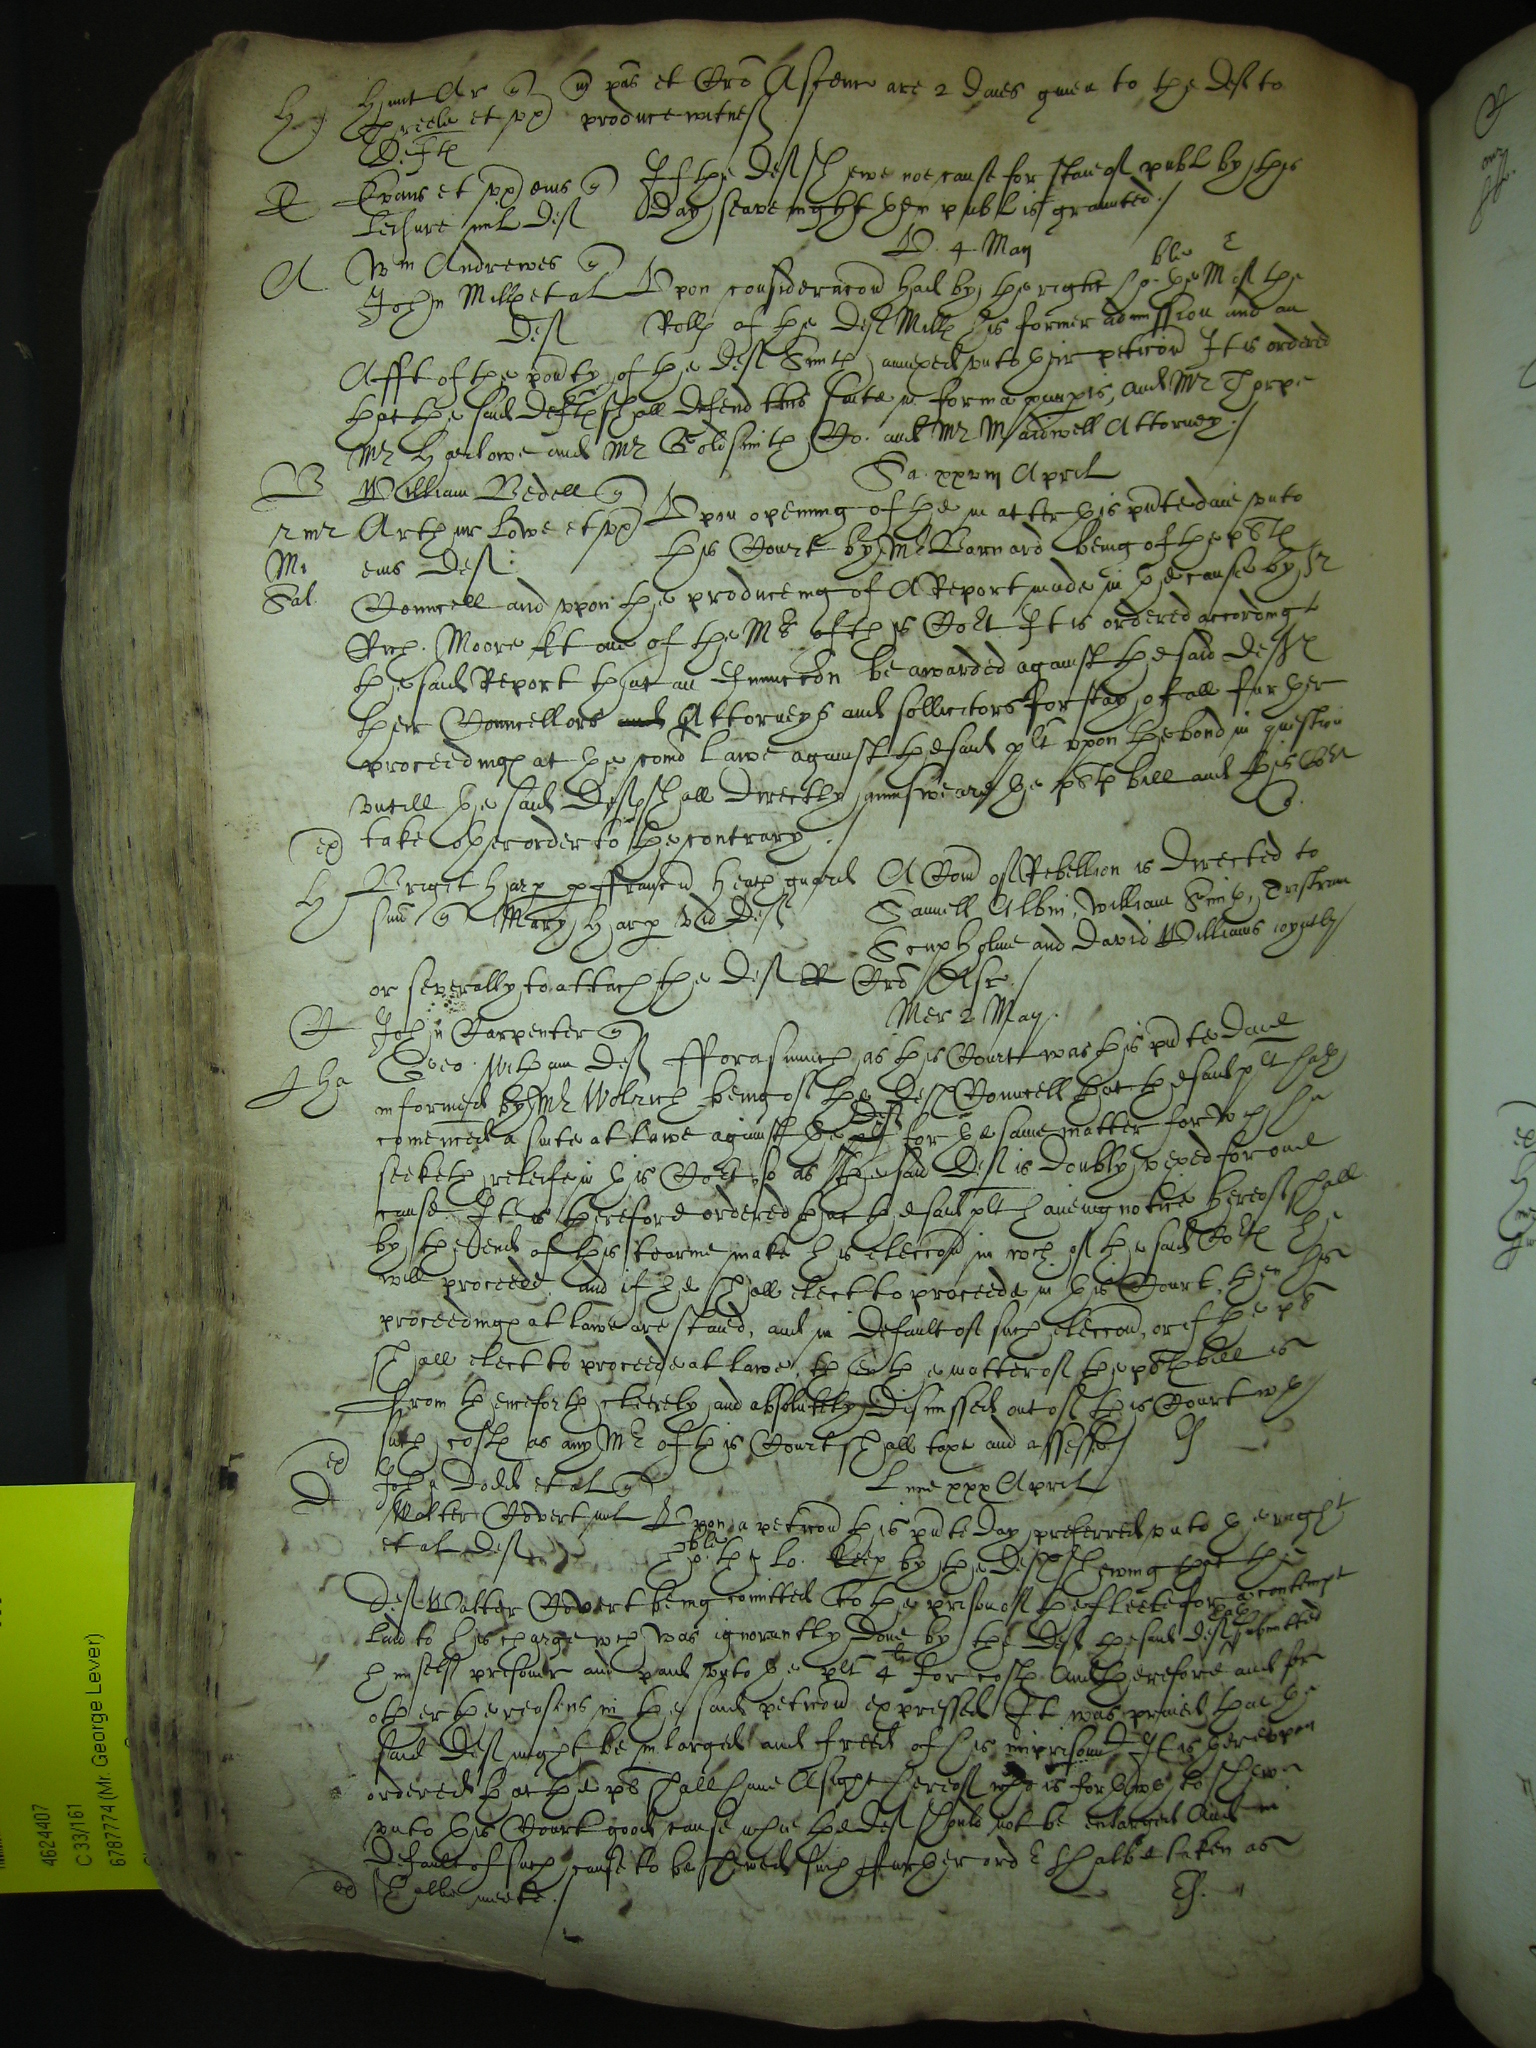 H Hunt Ar q m pas et Ord Ascenc are 2 daies given to the Def to
et ux produce witnes
Defts
E Evans et ux eius q If the Def shewe noe cause for staie of publ by this
Def Day seavenight then publ is graunted./
V. 4 May
A Wm Andrewes q
John Mills et al Upon consideracon had by the right ho:ble the Mr of the
Def Rolls of the Def Mills his former admission and an
Afft of the povty of the Def Smith annexed unto their peticon It is ordered
that the said Defts shall defend this suite in forma paupis, and Mr Thorpe
Mr Harlowe and Mr Goldsmith Co. and Mr Maidwell Attorney./
Sa. xxviii April
B William Bedell q
Arthur Lowe et ux Upon opening of the matter this pnte daie unto
Mr eius Def. this Court by Mr Barnard being of the plts
Sal. Councell and upon the produceing of A Report made in the cause by Sr
Rich. Moore kt one of the Mrs of this Cort It is ordered according to
the said Report that an Iniuncon be awarded against the said Defts
their Councellors and Attorneys and sollicitors for stay of all further
proceedings at the comon Lawe against the said plt upon the bond in question
untill the said Defts shall directly aunsweare the plts bill and this Cort
ex take other order to the contrary./
H Briget Harp q Heath A Com of Rebellion is directed to
q Mary Harp vid Def Samuell Albin, William Smith, Tristram
and David Williams ioyntly
or severally to attach the Def R Ord Asc./
Mer 2 May.
C John Carpenter q
Geo. Witham Def fforasmuch as this Court was this pnte Daie
informed by Mr Wolrich being of the Defs Councell that the said plt hath
comenced a suite at Lawe against the plt Def for the same matter for wch he
seeketh releife in this Cort so as the said Def is doubly vexed for one
cause It is therefore ordered that the said plt haveing notice hereof shall
by the end of this tearme make his eleccon in wch of the said Corts he
will proceede, and if he shall elect to proceede in this Court, then his
proceedings at Lawe are staied, and in default of such eleccon, or if the pl
shall elect to proceede at Lawe, then the matter of the plts bill is
from thenceforth cleerely and absolutely dismissed out of this Court wth
such costs as any Mr of this Court shall taxe and assesse./
ex
D John Dodd et al q Lune xxx April
Walter Covert mil Upon a peticon this pnte Day preferred unto the right
et al Def ho:ble the Lo. Keep by the Defts shewing that the
Def Walter Covert being comitted to the prison of the fleete for a contempt
laid to his charge wch was ignorantly done by the Def the said Def hath submitted
himself prisoner and paid unto the plt 4li for costs And therefore and for
other the reasons in the said peticon expressed It was praied that the
said Def might be inlarged and freed of his imprisonmt It is thereupon
ordered that the pl shall have A sight hereof who is forthwth to shewe
unto this Court good cause why the Def should not be enlarged And in
default of such cause to be shewed such further order shalbe taken as
ex shalbe meete./
4624407
C 33/161
6787774 (Mr. George Lever)